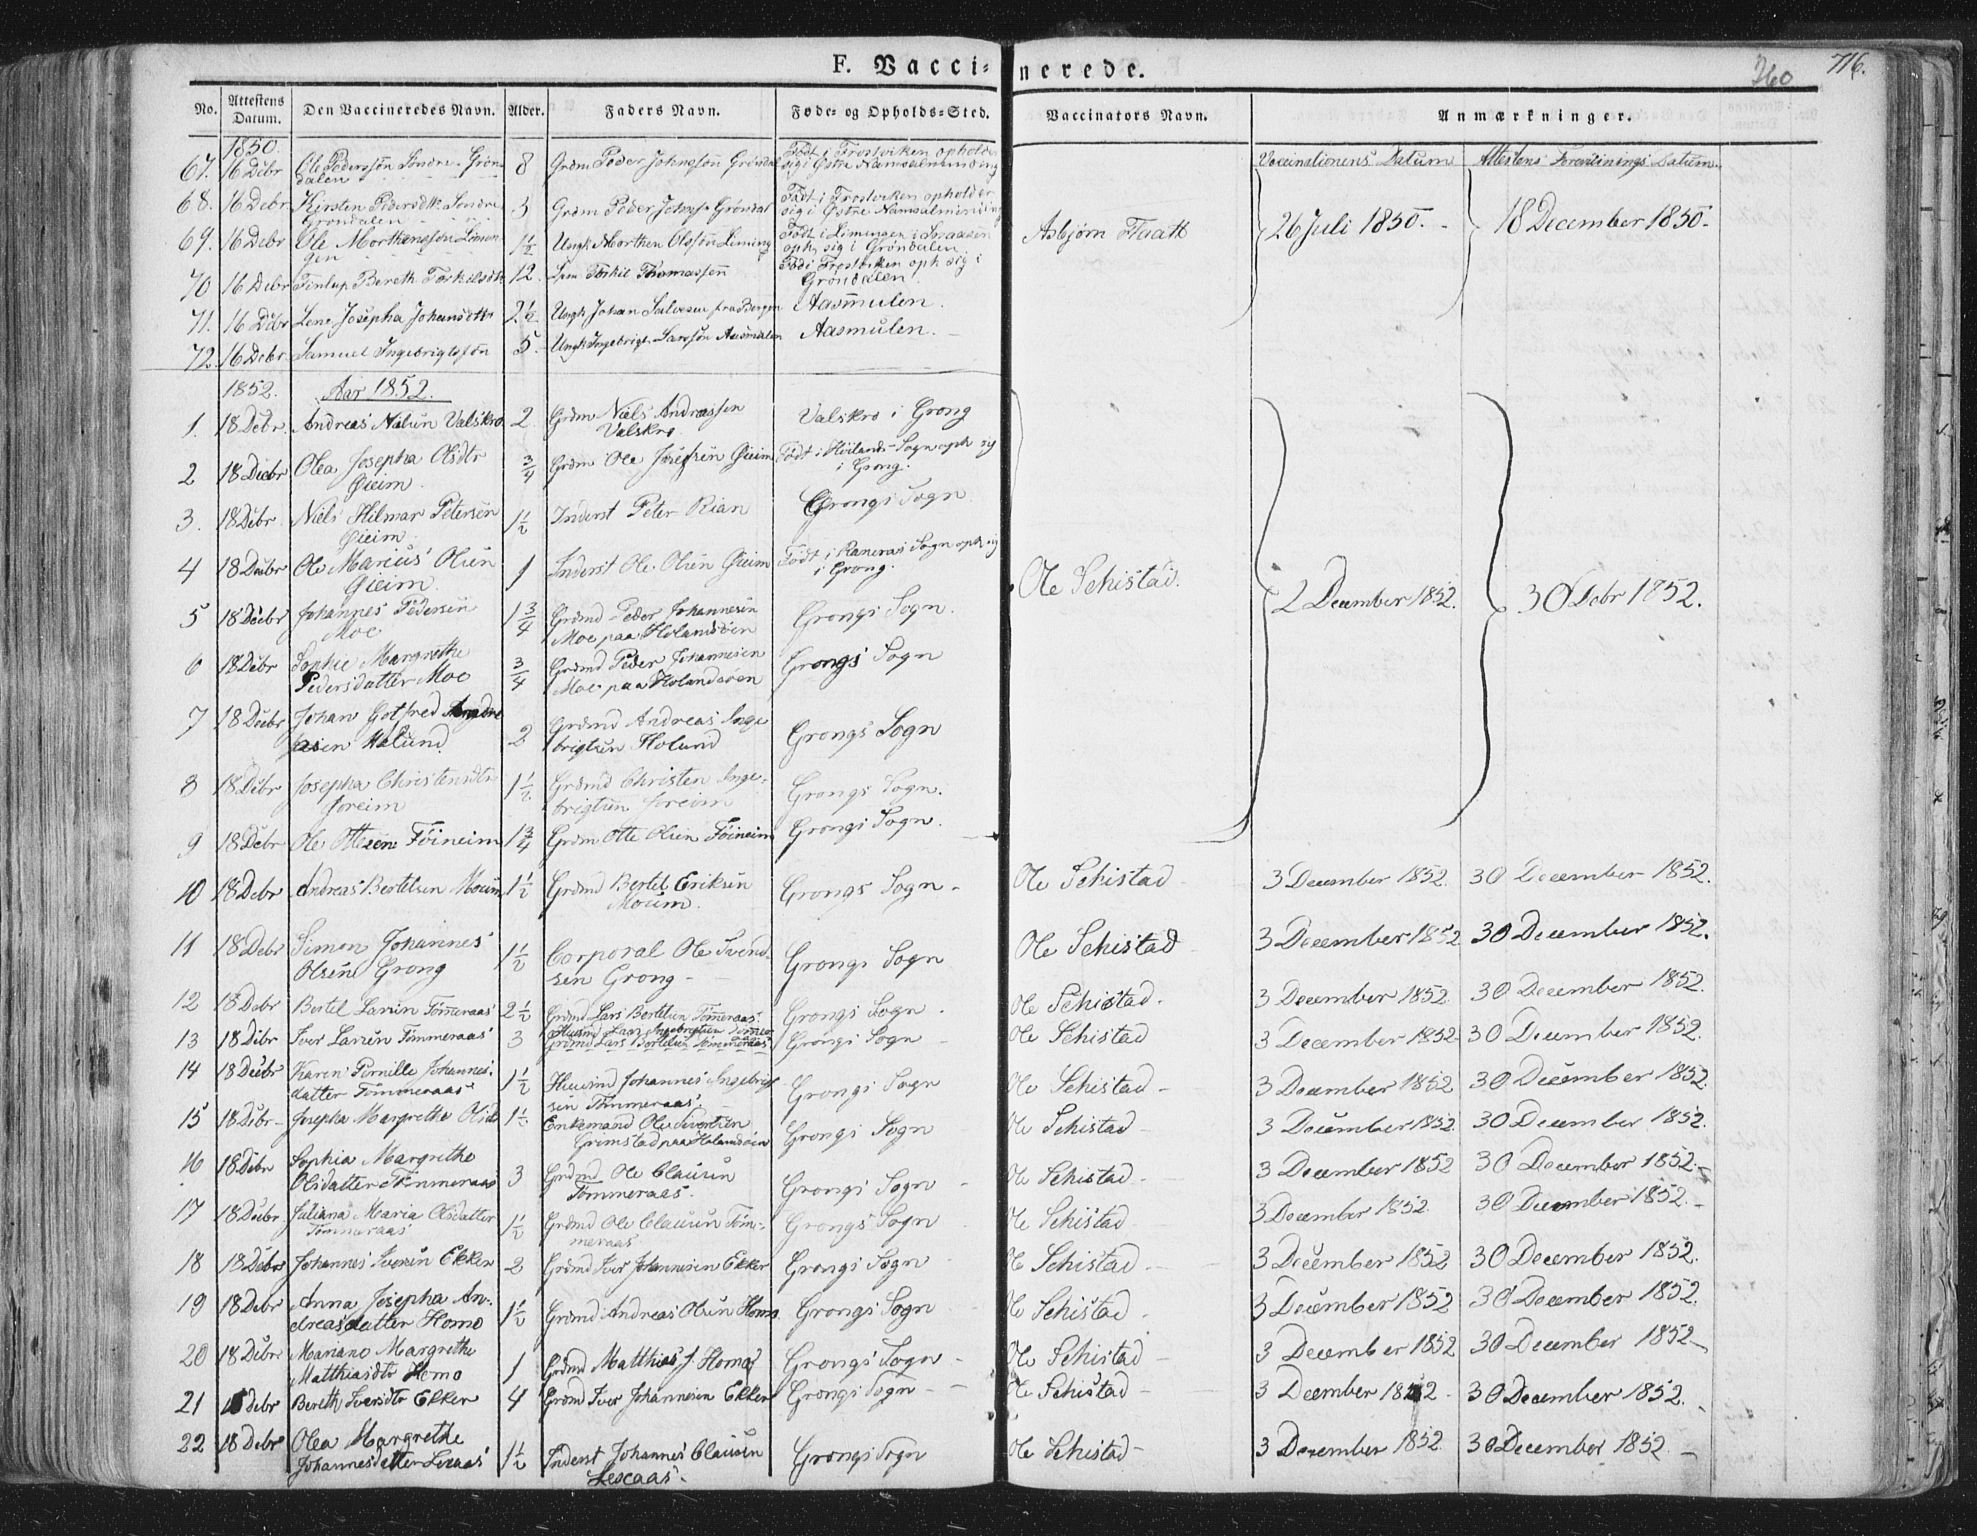 F. Vaccinerede.
260
716.
No. Attestens Datum. Den Vaccineredes Navn. Alder. Faders Navn. Føde- og Opholds-Sted. Vaccinators Navn. Anmærkninger.
Vaccinationens Datum Attestens Forevisnings Datum
1850.
67. 16 Debr Ole Pedersøn Søndre-Grøndalen 8 Grdm Peder Johnsøn Grøndal Født i Frostviken opholder sig i Østre Namsulminding
68. 16 Debr Kirsten Pedersdtr Søndre Grøndalen 3 Grdm Peder Johns. Grøndal Født i Frostviken opholder sig i Østre Namsulminding
69. 16 Debr Ole Morthensøn Limingen 1 1/2 Ungk Morthen Olsøn Liming Født i Limingen i Snaasen oph. sig i Grøndalen
Asbjørn Fiaatt 26 Juli 1850. 18 December 1850.
70 16 Debr Finlup Bereth Torkilsdtr 12. Torkil Thomassøn Fød i Frostviken oph sig i Grøndalen
71. 16 Debr Lene Josepha Johansdtr 2 1/2 Ungk Johan Salvesen fra Bergen Aasmulen.
72. 16 Debr Samuel Ingebrigtsøn 5. Ungk Ingebrigt Larsøn Aasmulen Aasmulen.
1852. Aar 1852.
1. 18 Debr. Andreas Nilsen Valskro 2 Grdm Niels Andreassen Valskro Valskro i Grong
2 18 Decbr Olea Josepha Olsdtr Gieim 3/4 Grdm Ole Josefsen Gieim Født i Høilands-Sogn oph sig i Grong.
3. 18 Debr. Niels Hilmar Petersen Gieim 1 1/2 Inderst Peter Rian Grongs Sogn
4 18 Decbr Ole Marius Olsen Gieim 1 Inderst Ole Olsen Gieim Født i Ranems Sogn oph sig i Grong.
Ole Schistad. 2 December 1852. 30 Debr 1852.
5 18 Decbr Johannes Pedersen Moe 1 3/4 Grdmd Peder Johannesen Moe paa Holandsøen Grongs Sogn.
6 18 Debr Sophie Margrethe Pedersdatter Moe 3/4 Grdmd Peder Johannesen Moe paa Holandsøen Grongs Sogn
7 18 Decbr Johan Gotfred Andreasen Holund 2 Grdmd Andreas Ingebrigtsen Holund Grongs Sogn
8 18 Debr Josepha Christensdtr Føreim 1 1/2 Grdmd Christen Ingebrigtsen Føreim Grongs Sogn.
9 18 Debr Ole Ottesen Føineim 1 3/4 Grdm Otte Olsen Føineim Grongs Sogn.
10 18 Debr Andreas Bertelsen Moum 1 1/2 Grdmd Bertel Eriksen Moum. Grongs Sogn - Ole Schistad 3 December 1852. 30 December 1852.
11 18 Debr Simon Johannes Olsen Grong 1 1/2 Corporal Ole Svendsen Grong - Grongs Sogn Ole Schistad 3 December 1852 30 December 1852.
12 18 Debr Bertel Larsen Tømmeraas 2 1/2 Grdmd Lars Bertelsen Tømmeraas. Grongs Sogn. Ole Schistad. 3 December 1852. 30 December 1852.
13 18 Debr Iver Larsen Tømmeraas 3 Huusmd Lars Ingebrigtsen Tømmeraas Grdmd Lars Bertelsen Tømmeraas Grongs Sogn Ole Schistad 3 December 1852. 30 December 1852.
14 18 Decbr Karen Pernille Johannesdatter Tømmeraas 1 1/2 Huusmd Johannes Ingebrigtsen Tømmeraas. Grongs Sogn Ole Schistad - 3 December 1852 30 December 1852.
15 18 Debr - Josepha Margrethe Olsdtr 1 1/2 Enkemand Ole Sivertsen Grimstad paa Holandsøen Grongs Sogn Ole Schistad - 3 December 1852. 30 December 1852.
16 18 Debr Sophia Margrethe Olsdatter Tømmeraas 3 Grdmd Ole Clausen Tømmeraas. Grongs Sogn Ole Schistad - 3 December 1852 30 December 1852. -
17 18 Decbr Juliana Maria Olsdatter Tømmeraas 1 1/2 Grdmd Ole Clausen Tømmeraas Grongs Sogn Ole Schistad 3 December 1852. 30 December 1852. -
18 18 Debr Johannes Iversen Ekker 2 Grdmd Iver Johannesen Ekker Grongs Sogn Ole Schistad 3 December 1852 30 December 1852.
19 18 Debr Anna Josepha Andreasdatter Homo 1 1/2 Grdmd Andreas Olsen Homo Grongs Sogn Ole Schistad 3 December 1852 30 December 1852.
20 18 Debr Mariano Margrethe Matthiasdtr Homo 1 Grdmd Matthias J. Homo Grongs Sogn - Ole Schistad - 3 December 1852 30 December 1852. -
21 18 Debr Bereth Iversdtr Ekker 4 Grdmd Iver Johannesen Ekker Grongs Sogn - Ole Schistad - 3 December 1852 - 30 December 1852.
22 18 Debr Olea Margrethe Johannesdatter Lexaas 1 1/2 Inderst Johannes Clausen Lexaas. Grongs Sogn Ole Schistad - 3 December 1852. 30 December 1852. -